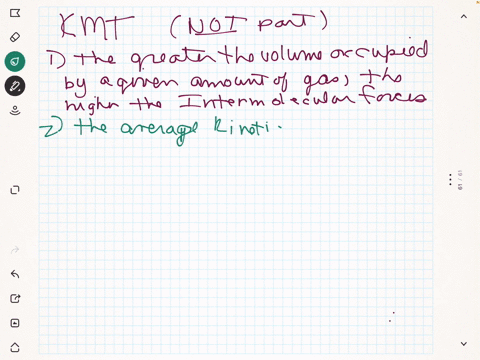 KMT (NOT part)
1) the greater the volume occupied
by a given amount of gas, the
higher the Intermolecular forces
2) the average kineti